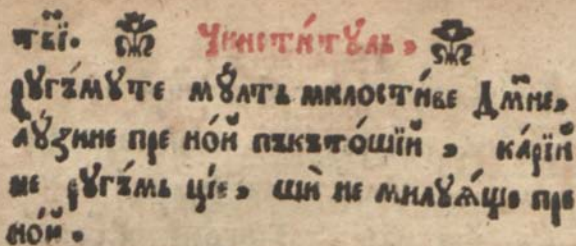 твⷭ҇їи. Чинсти́тꙋль,
рꙋгъ́мꙋте мꙋ́лть милости́ве Дм҃не,
аꙋ́зине пре но́й пъкъто́шїй , ка́рїй
не рꙋгъ́мь ці́е, шѝ не милꙋꙗ́ще пре
но́й.